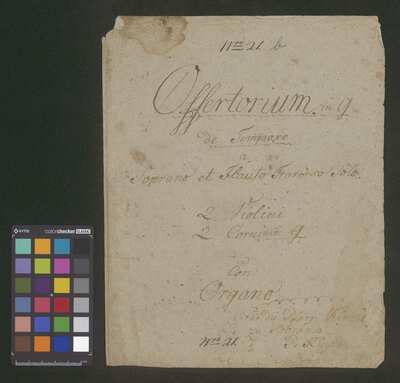 nro 21 b
Offertorium in G
de Tempore
a
Soprano et Flauto Traverso Solo.
2 Violini
2 Corni in G
con
Organo
nro 21.
colorchecker CLASSIC